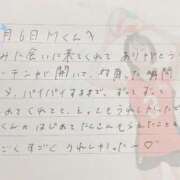 月6日 Mくんへ
みに会いに来てくれて ありがとう
テンが開いて、対面した瞬間
、バイバイするまで、ずっと
めてくれてて、とってもうれしかった
くんの はじめて たくさんもらえたことも
ごく すごく うれしかった〜♡